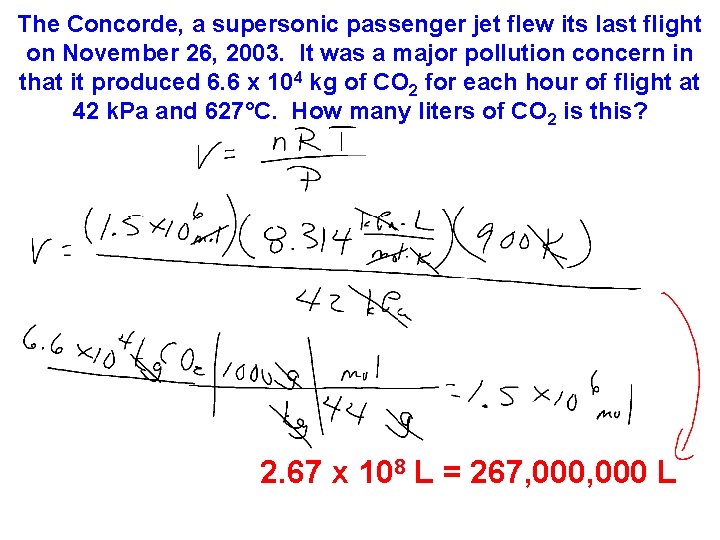 The Concorde, a supersonic passenger jet flew its last flight
on November 26, 2003. It was a major pollution concern in
that it produced 6.6 x 10⁴ kg of CO₂ for each hour of flight at
42 k.Pa and 627°C. How many liters of CO₂ is this?
V = nRT / P
V = (1.5 x 10⁶ mol)(8.314 kPa·L / mol·K)(900 K) / 42 kPa
6.6 x 10⁴ kg CO₂ | 1000 g / kg | mol / 44 g = 1.5 x 10⁶ mol
2.67 x 10⁸ L = 267,000,000 L